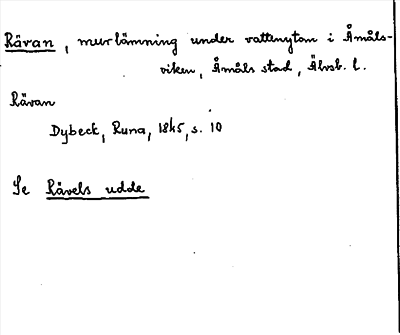 Råvan, murlämning under vattenytan i Åmåls-
viken, Åmåls stad, Älvsb. l.
Råvan
Dybeck, Runa, 1845, s. 10
Se Råvels udde